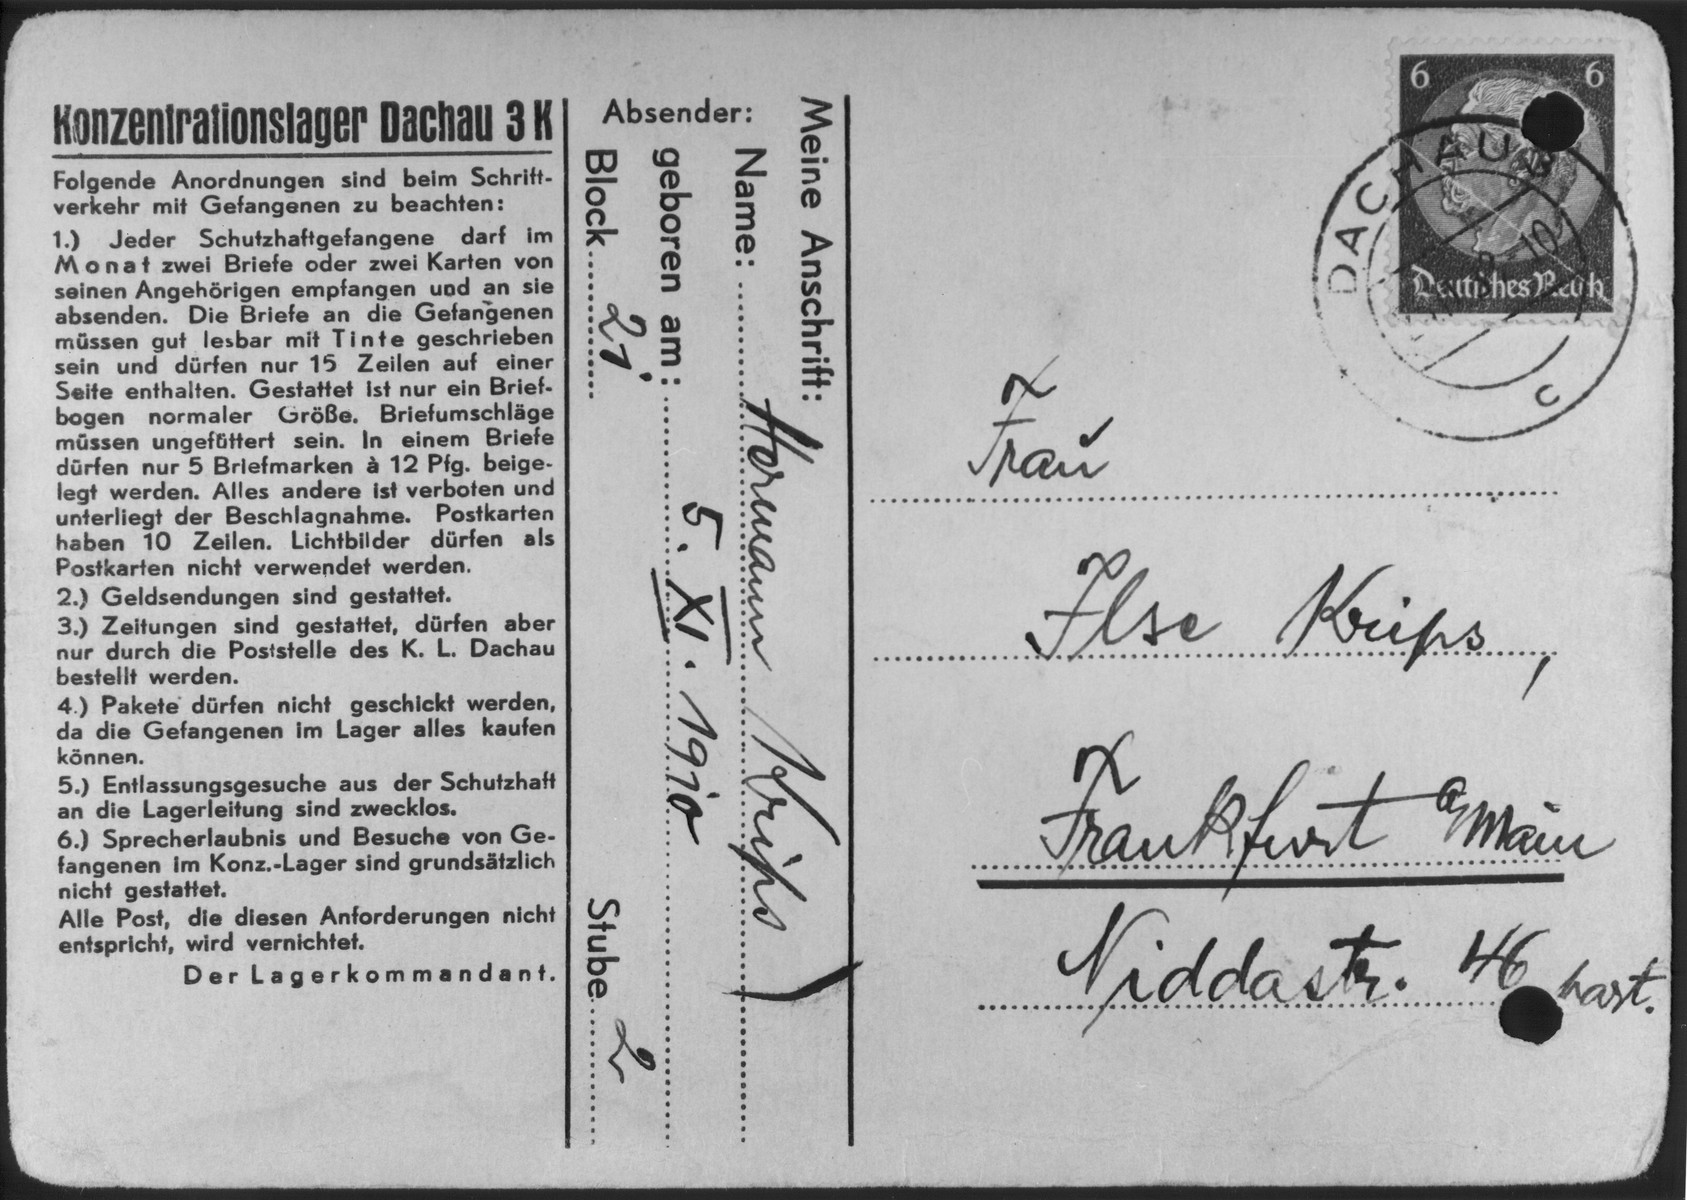 Konzentrationslager Dachau 3 K
Folgende Anordnungen sind beim Schrift-
verkehr mit Gefangenen zu beachten:
1.) Jeder Schutzhaftgefangene darf im
Monat zwei Briefe oder zwei Karten von
seinen Angehörigen empfangen und an sie
absenden. Die Briefe an die Gefangenen
müssen gut lesbar mit Tinte geschrieben
sein und dürfen nur 15 Zeilen auf einer
Seite enthalten. Gestattet ist nur ein Brief-
bogen normaler Größe. Briefumschläge
müssen ungefüttert sein. In einem Briefe
dürfen nur 5 Briefmarken à 12 Pfg. beige-
legt werden. Alles andere ist verboten und
unterliegt der Beschlagnahme. Postkarten
haben 10 Zeilen. Lichtbilder dürfen als
Postkarten nicht verwendet werden.
2.) Geldsendungen sind gestattet.
3.) Zeitungen sind gestattet, dürfen aber
nur durch die Poststelle des K. L. Dachau
bestellt werden.
4.) Pakete dürfen nicht geschickt werden,
da die Gefangenen im Lager alles kaufen
können.
5.) Entlassungsgesuche aus der Schutzhaft
an die Lagerleitung sind zwecklos.
6.) Sprecherlaubnis und Besuche von Ge-
fangenen im Konz.-Lager sind grundsätzlich
nicht gestattet.
Alle Post, die diesen Anforderungen nicht
entspricht, wird vernichtet.
Der Lagerkommandant.
Absender:
Meine Anschrift:
Name: Hermann Krips
geboren am: 5. XI. 1910
Block 21 Stube 2
6 6
Deutsches Reich
DACHAU
c
Frau
Ilse Krips,
Frankfurt a/Main
Niddastr. 46